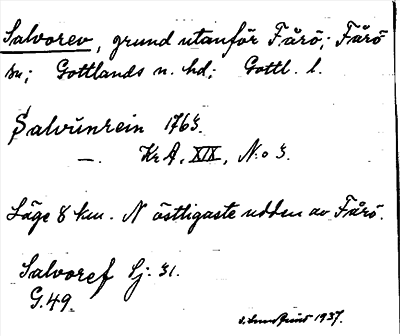 Salvorev, grund utanför Fårö; Fårö
sn; Gottlands n. hd; Gottl. l.
Salvünrein 1763.
—. KrA, XIX, N:o 3.
Läge 8 km. N östligaste udden av Fårö.
Salvoref Sj: 31.
G.49.
1937.